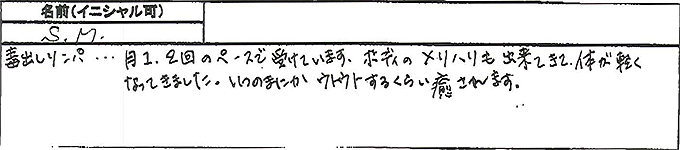 名前(イニシャル可)
S.M.
毒出しリンパ… 月1.2回のペースで受けています。ボディのメリハリも出来てきて、体が軽く
なってきました。いつのまにかウトウトするくらい癒されます。